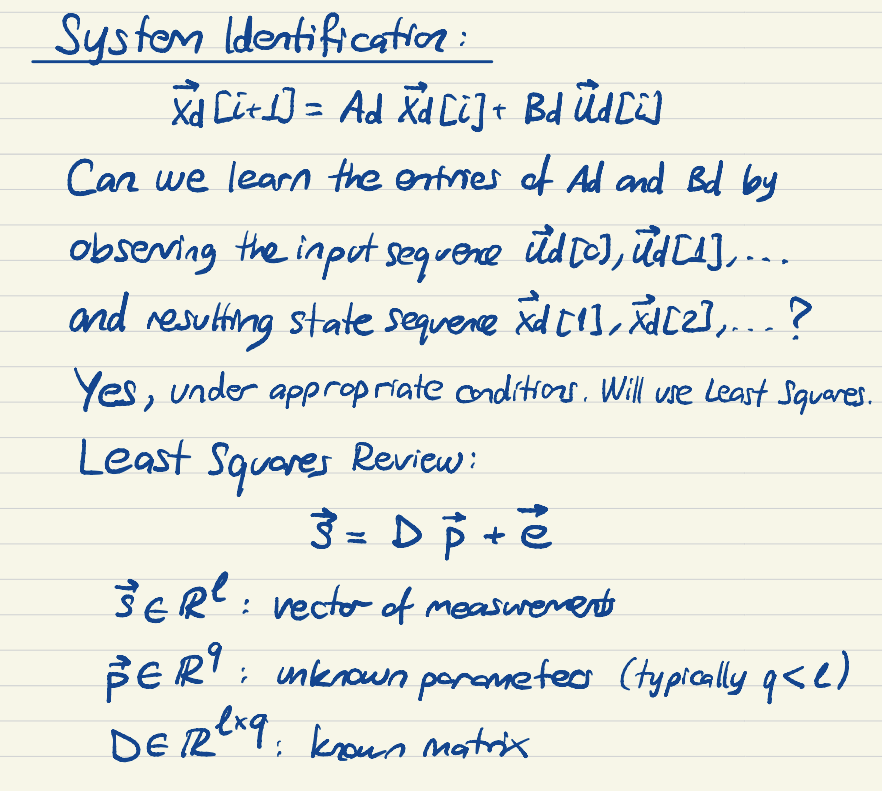 System Identification:
x⃗d[i+1] = Ad x⃗d[i] + Bd u⃗d[i]
Can we learn the entries of Ad and Bd by
observing the input sequence u⃗d[0], u⃗d[1], ...
and resulting state sequence x⃗d[1], x⃗d[2], ... ?
Yes, under appropriate conditions. Will use Least Squares.
Least Squares Review:
s⃗ = D p⃗ + e⃗
s⃗ ∈ ℝ^ℓ : vector of measurements
p⃗ ∈ ℝ^q : unknown parameters (typically q < ℓ)
D ∈ ℝ^ℓ×q : known matrix